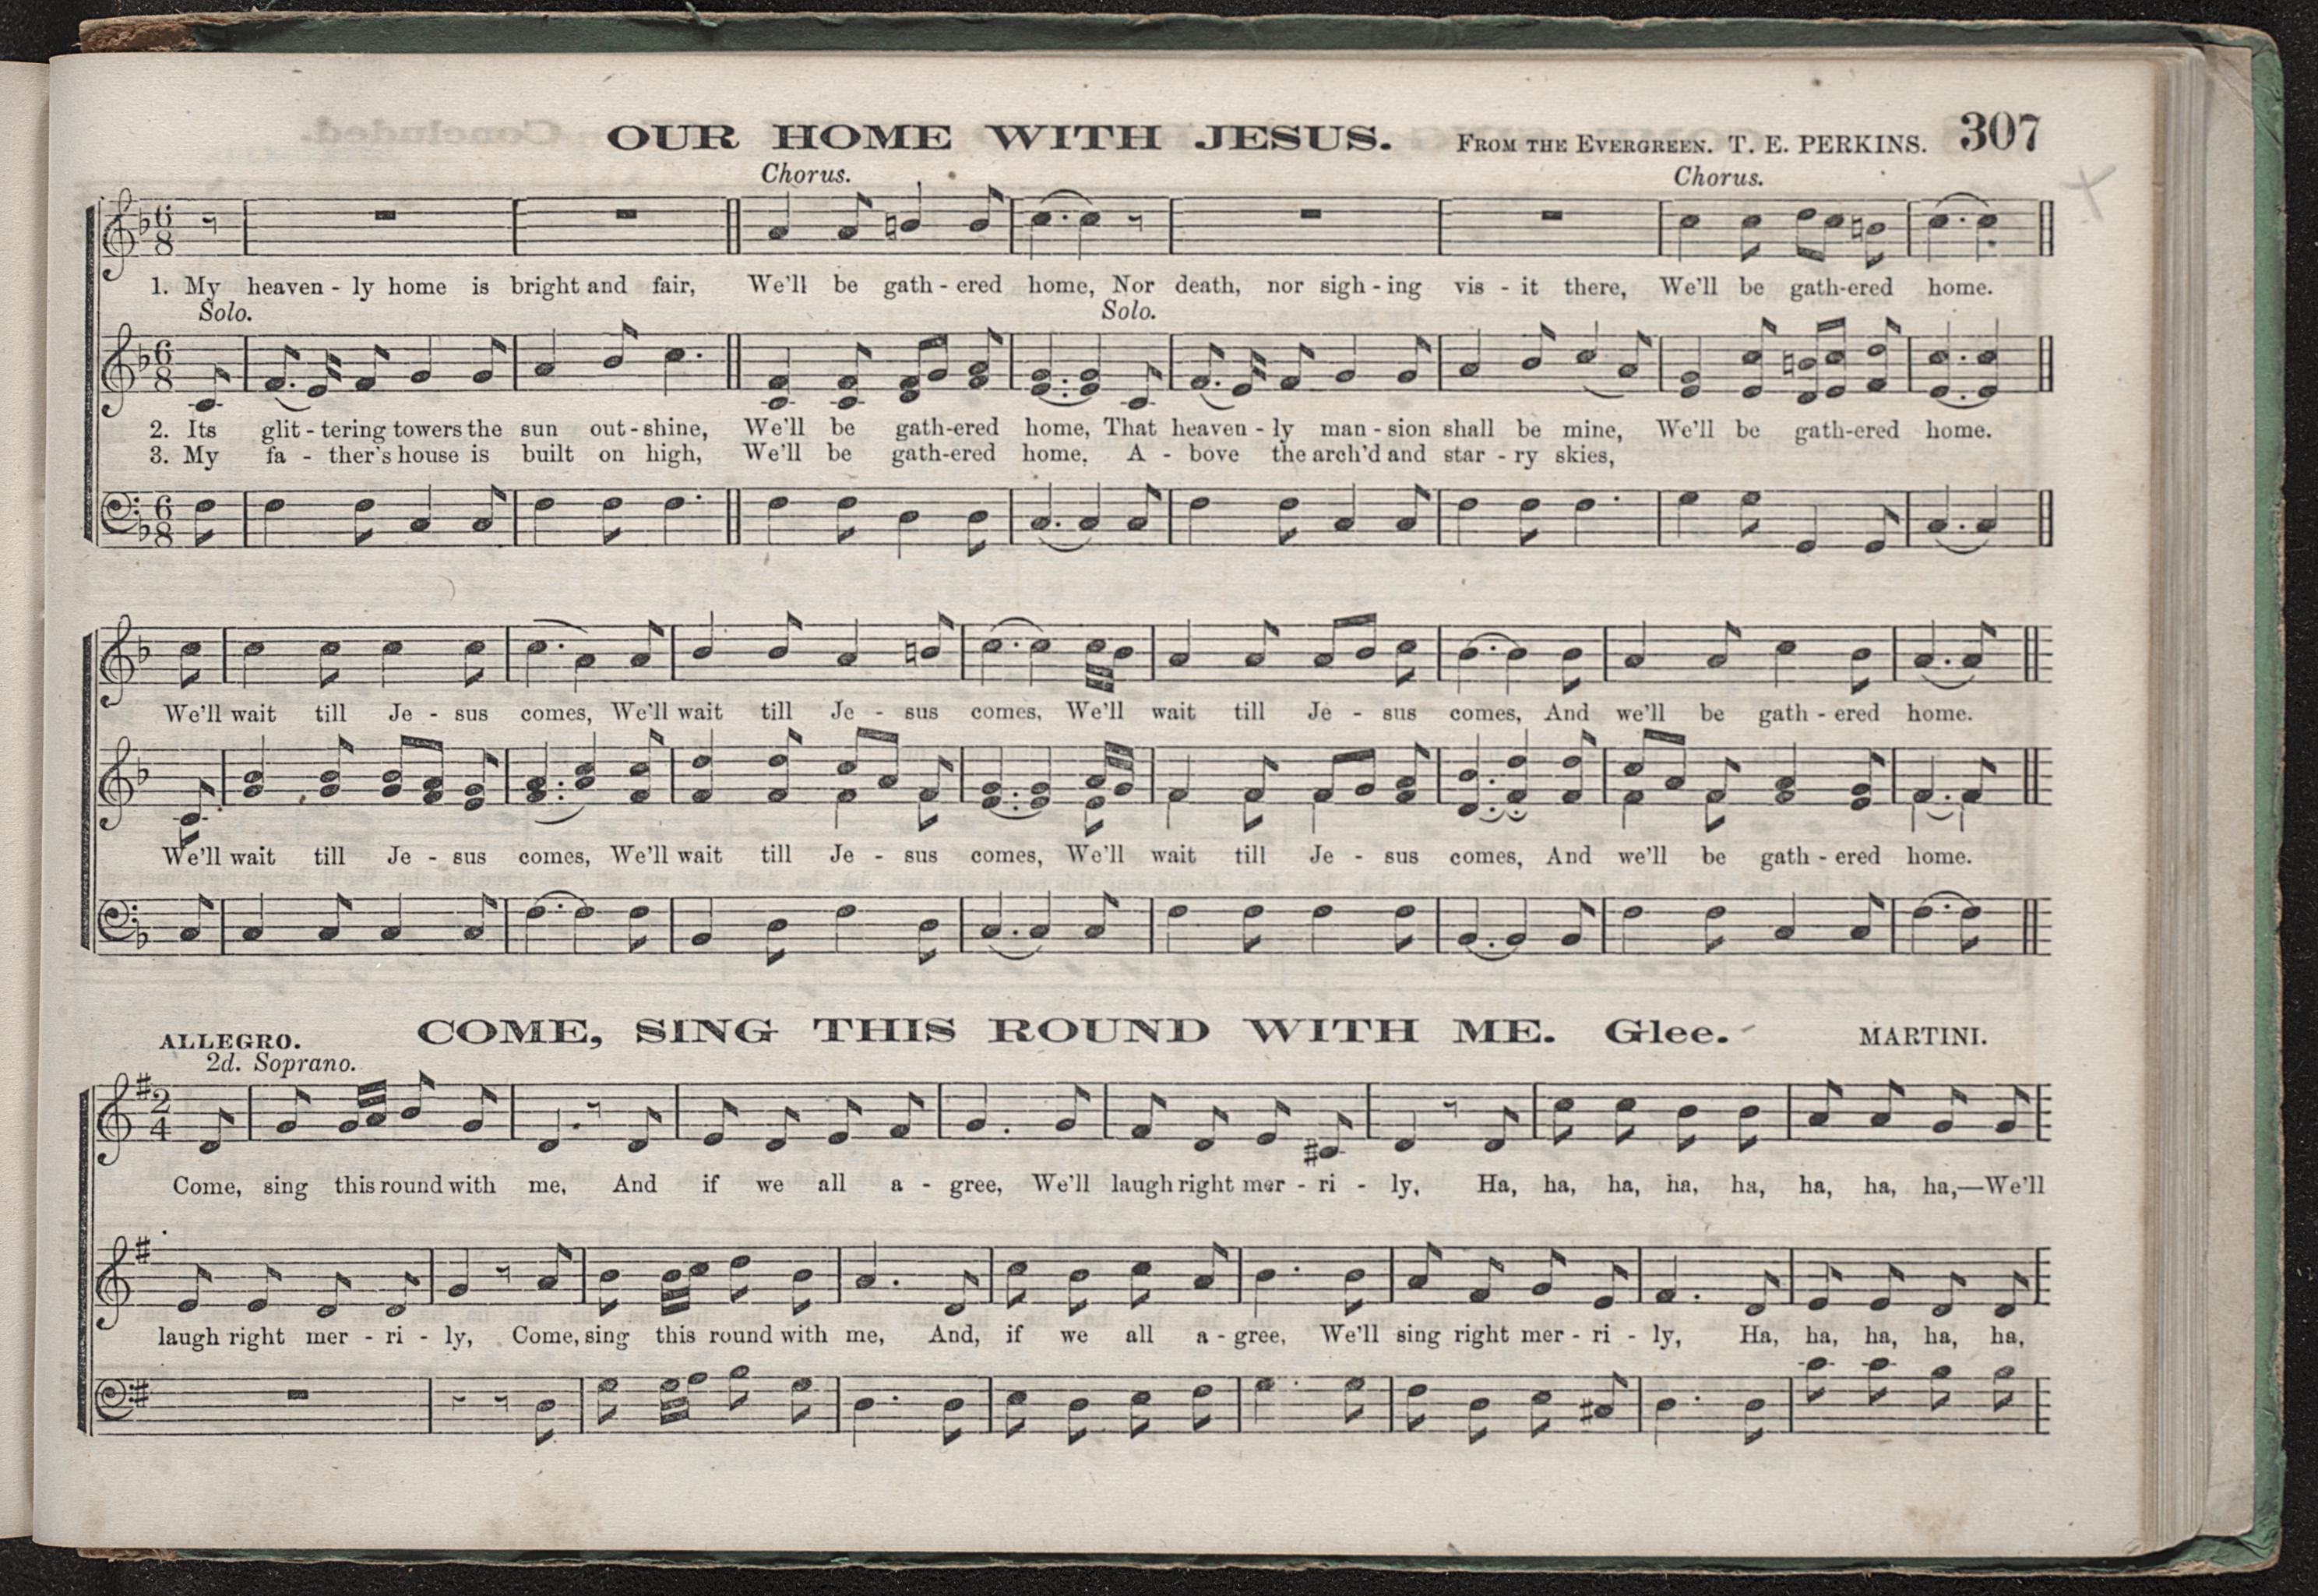 OUR HOME WITH JESUS. FROM THE EVERGREEN. T. E. PERKINS. 307
Chorus. Chorus.
1. My heaven - ly home is bright and fair, We'll be gath - ered home, Nor death, nor sigh - ing vis - it there, We'll be gath-ered home.
Solo. Solo.
2. Its glit - tering towers the sun out - shine, We'll be gath-ered home, That heaven - ly man - sion shall be mine, We'll be gath-ered home.
3. My fa - ther's house is built on high, We'll be gath-ered home, A - bove the arch'd and star - ry skies,
We'll wait till Je - sus comes, We'll wait till Je - sus comes, We'll wait till Je - sus comes, And we'll be gath - ered home.
We'll wait till Je - sus comes, We'll wait till Je - sus comes, We'll wait till Je - sus comes, And we'll be gath - ered home.
COME, SING THIS ROUND WITH ME. Glee. MARTINI.
ALLEGRO.
2d. Soprano.
Come, sing this round with me, And if we all a - gree, We'll laugh right mer - ri - ly, Ha, ha, ha, ha, ha, ha, ha, ha,—We'll
laugh right mer - ri - ly, Come, sing this round with me, And, if we all a - gree, We'll sing right mer - ri - ly, Ha, ha, ha, ha, ha,